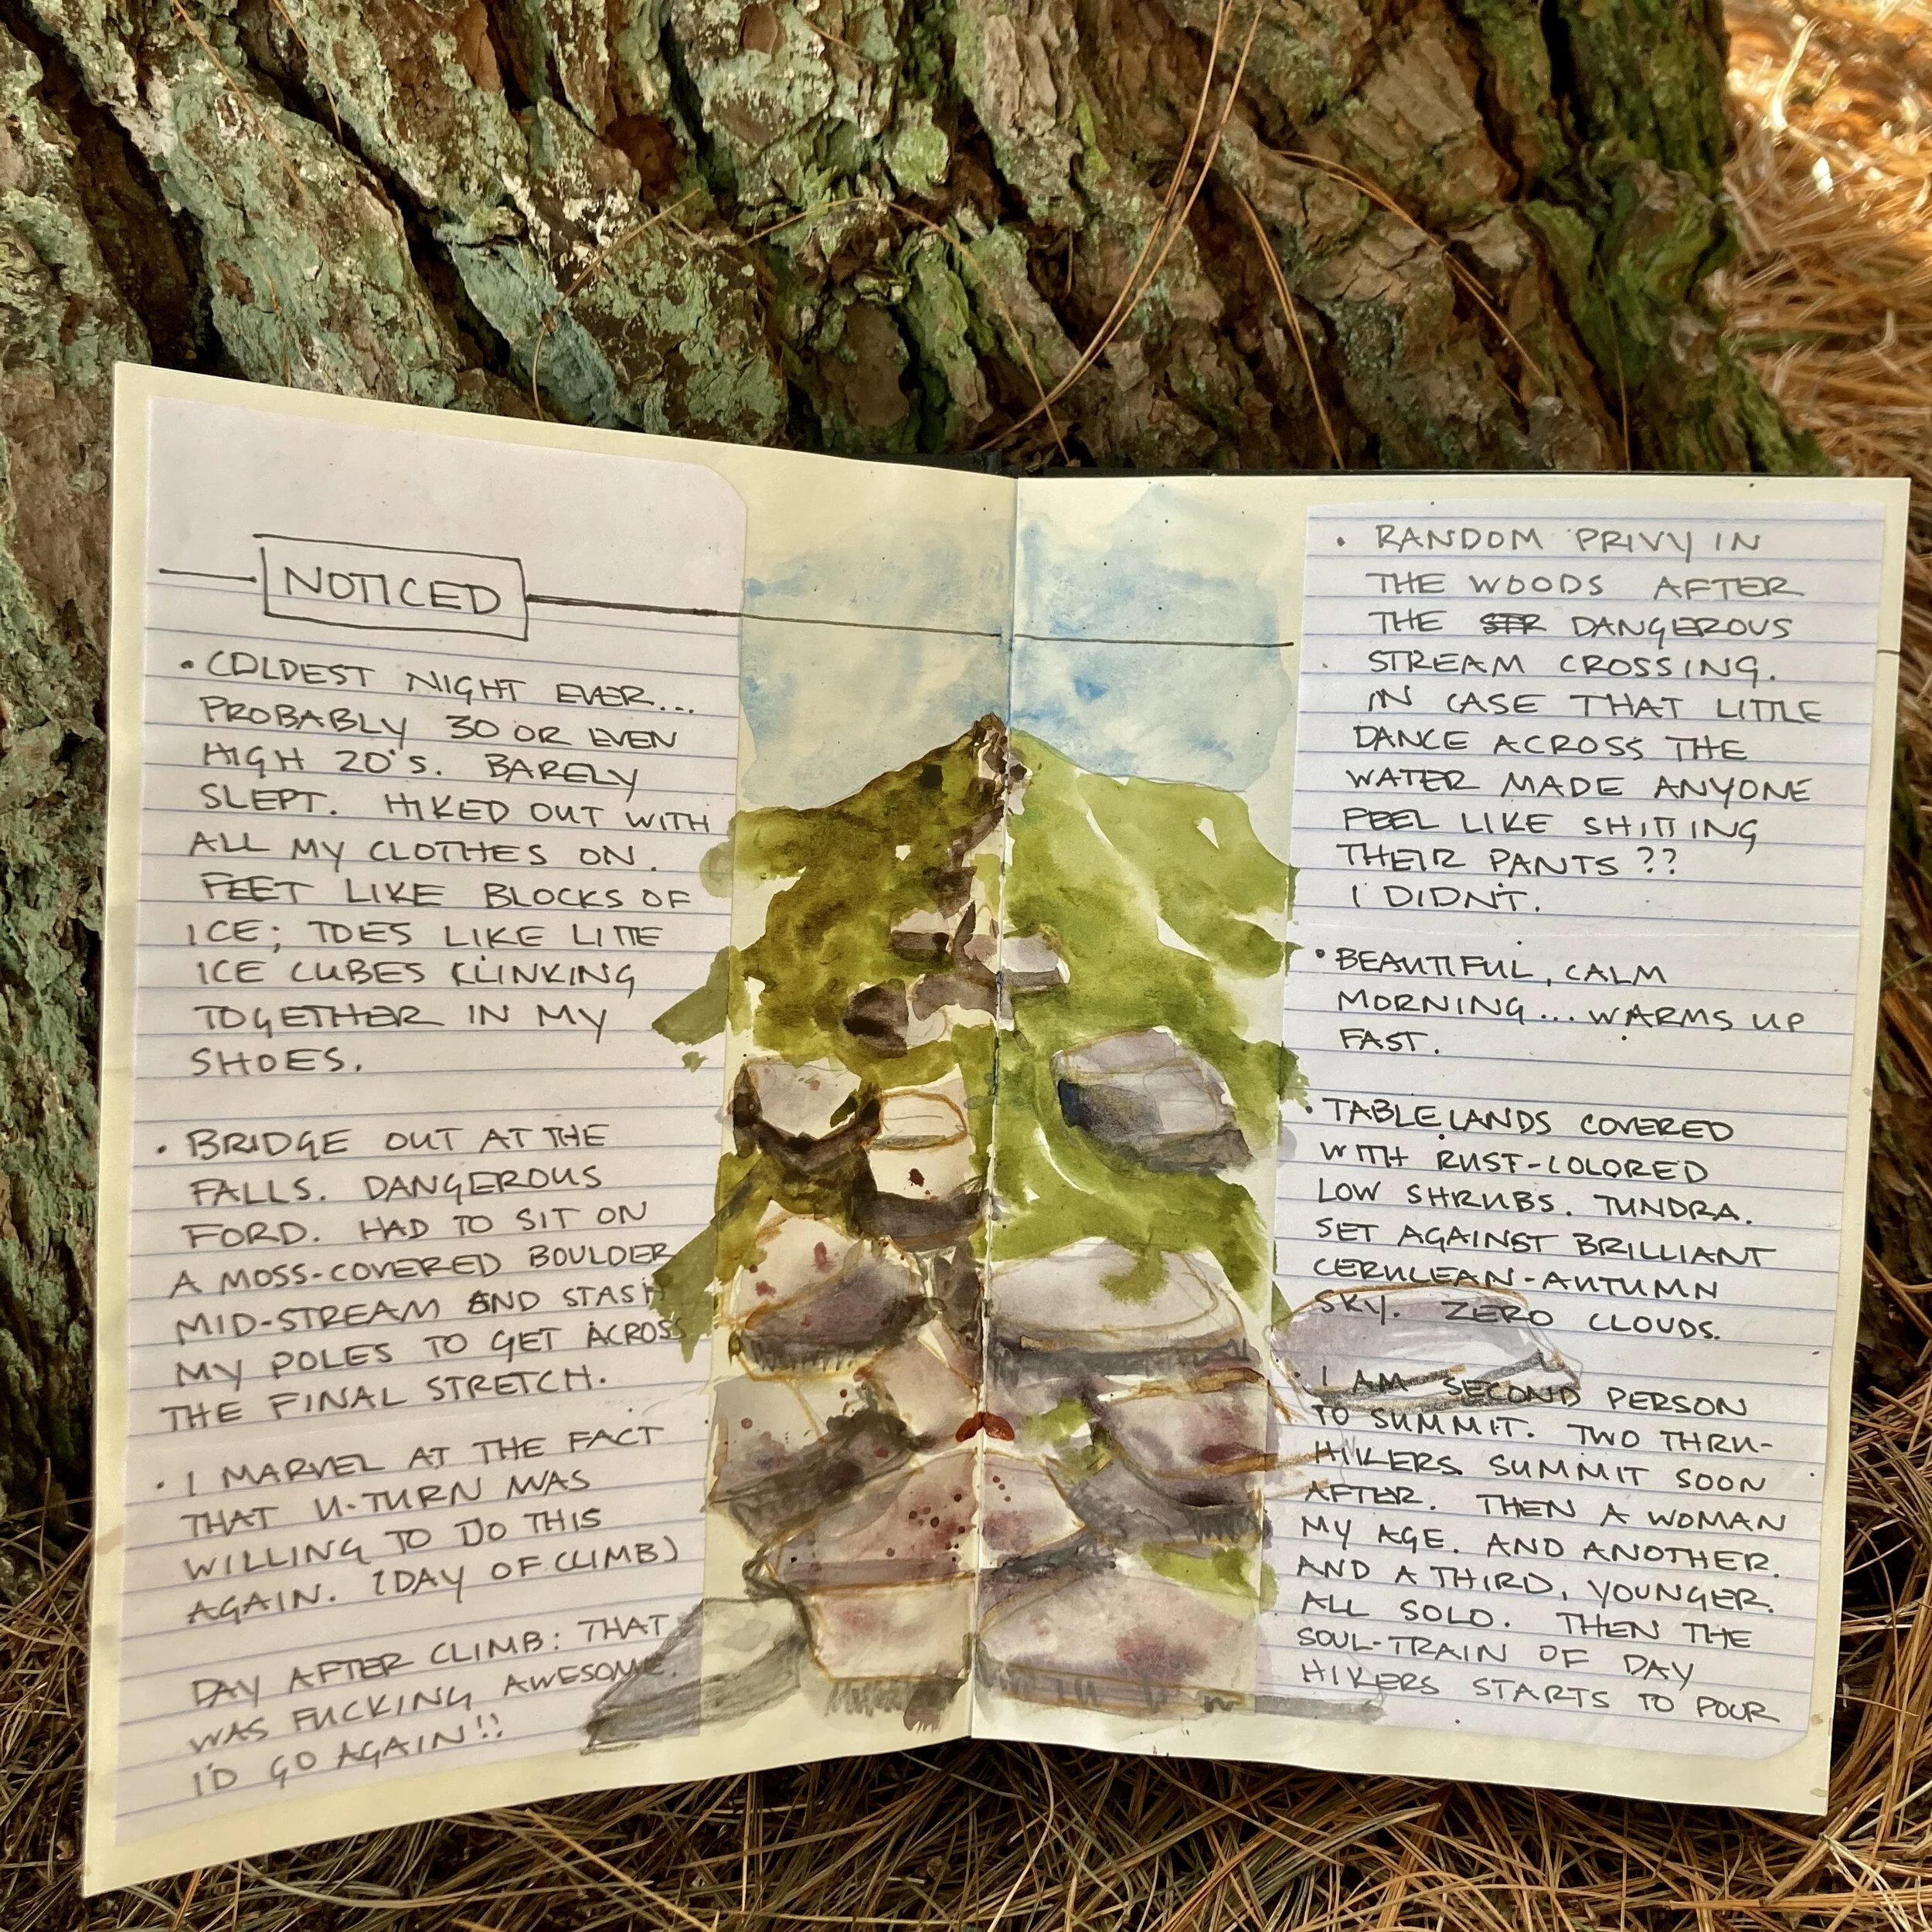 NOTICED
• COLDEST NIGHT EVER...
PROBABLY 30 OR EVEN
HIGH 20's. BARELY
SLEPT. HIKED OUT WITH
ALL MY CLOTHES ON.
FEET LIKE BLOCKS OF
ICE; TOES LIKE LITTLE
ICE CUBES KLINKING
TOGETHER IN MY
SHOES.
• BRIDGE OUT AT THE
FALLS. DANGEROUS
FORD. HAD TO SIT ON
A MOSS-COVERED BOULDER
MID-STREAM AND STASH
MY POLES TO GET ACROSS
THE FINAL STRETCH.
• I MARVEL AT THE FACT
THAT U-TURN WAS
WILLING TO DO THIS
AGAIN. (DAY OF CLIMB)
DAY AFTER CLIMB: THAT
WAS FUCKING AWESOME.
I'D GO AGAIN!!
• RANDOM PRIVY IN
THE WOODS AFTER
THE STR DANGEROUS
STREAM CROSSING.
IN CASE THAT LITTLE
DANCE ACROSS THE
WATER MADE ANYONE
FEEL LIKE SHITTING
THEIR PANTS??
I DIDN'T.
• BEAUTIFUL, CALM
MORNING... WARMS UP
FAST.
• TABLELANDS COVERED
WITH RUST-COLORED
LOW SHRUBS. TUNDRA.
SET AGAINST BRILLIANT
CERULEAN-AUTUMN
SKY. ZERO CLOUDS.
• I AM SECOND PERSON
TO SUMMIT. TWO THRU-
HIKERS SUMMIT SOON
AFTER. THEN A WOMAN
MY AGE. AND ANOTHER.
AND A THIRD, YOUNGER.
ALL SOLO. THEN THE
SOUL-TRAIN OF DAY
HIKERS STARTS TO POUR